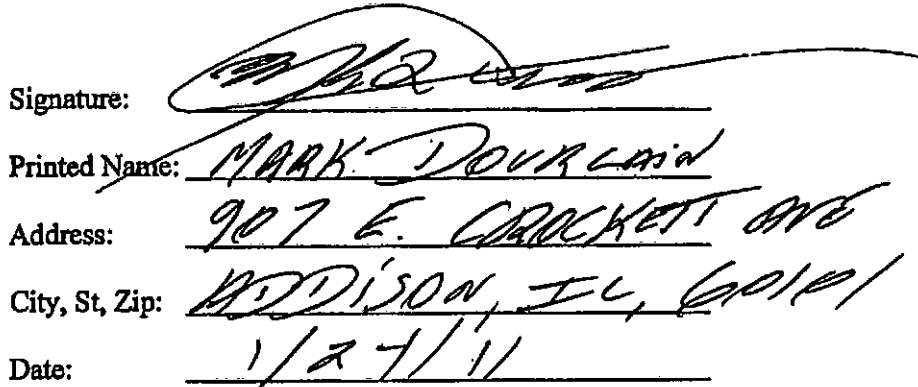 Signature:
Printed Name: MARK DOURLAIN
Address: 907 E. CROCKETT AVE
City, St, Zip: ADDISON, IL, 60101
Date: 1/27/11